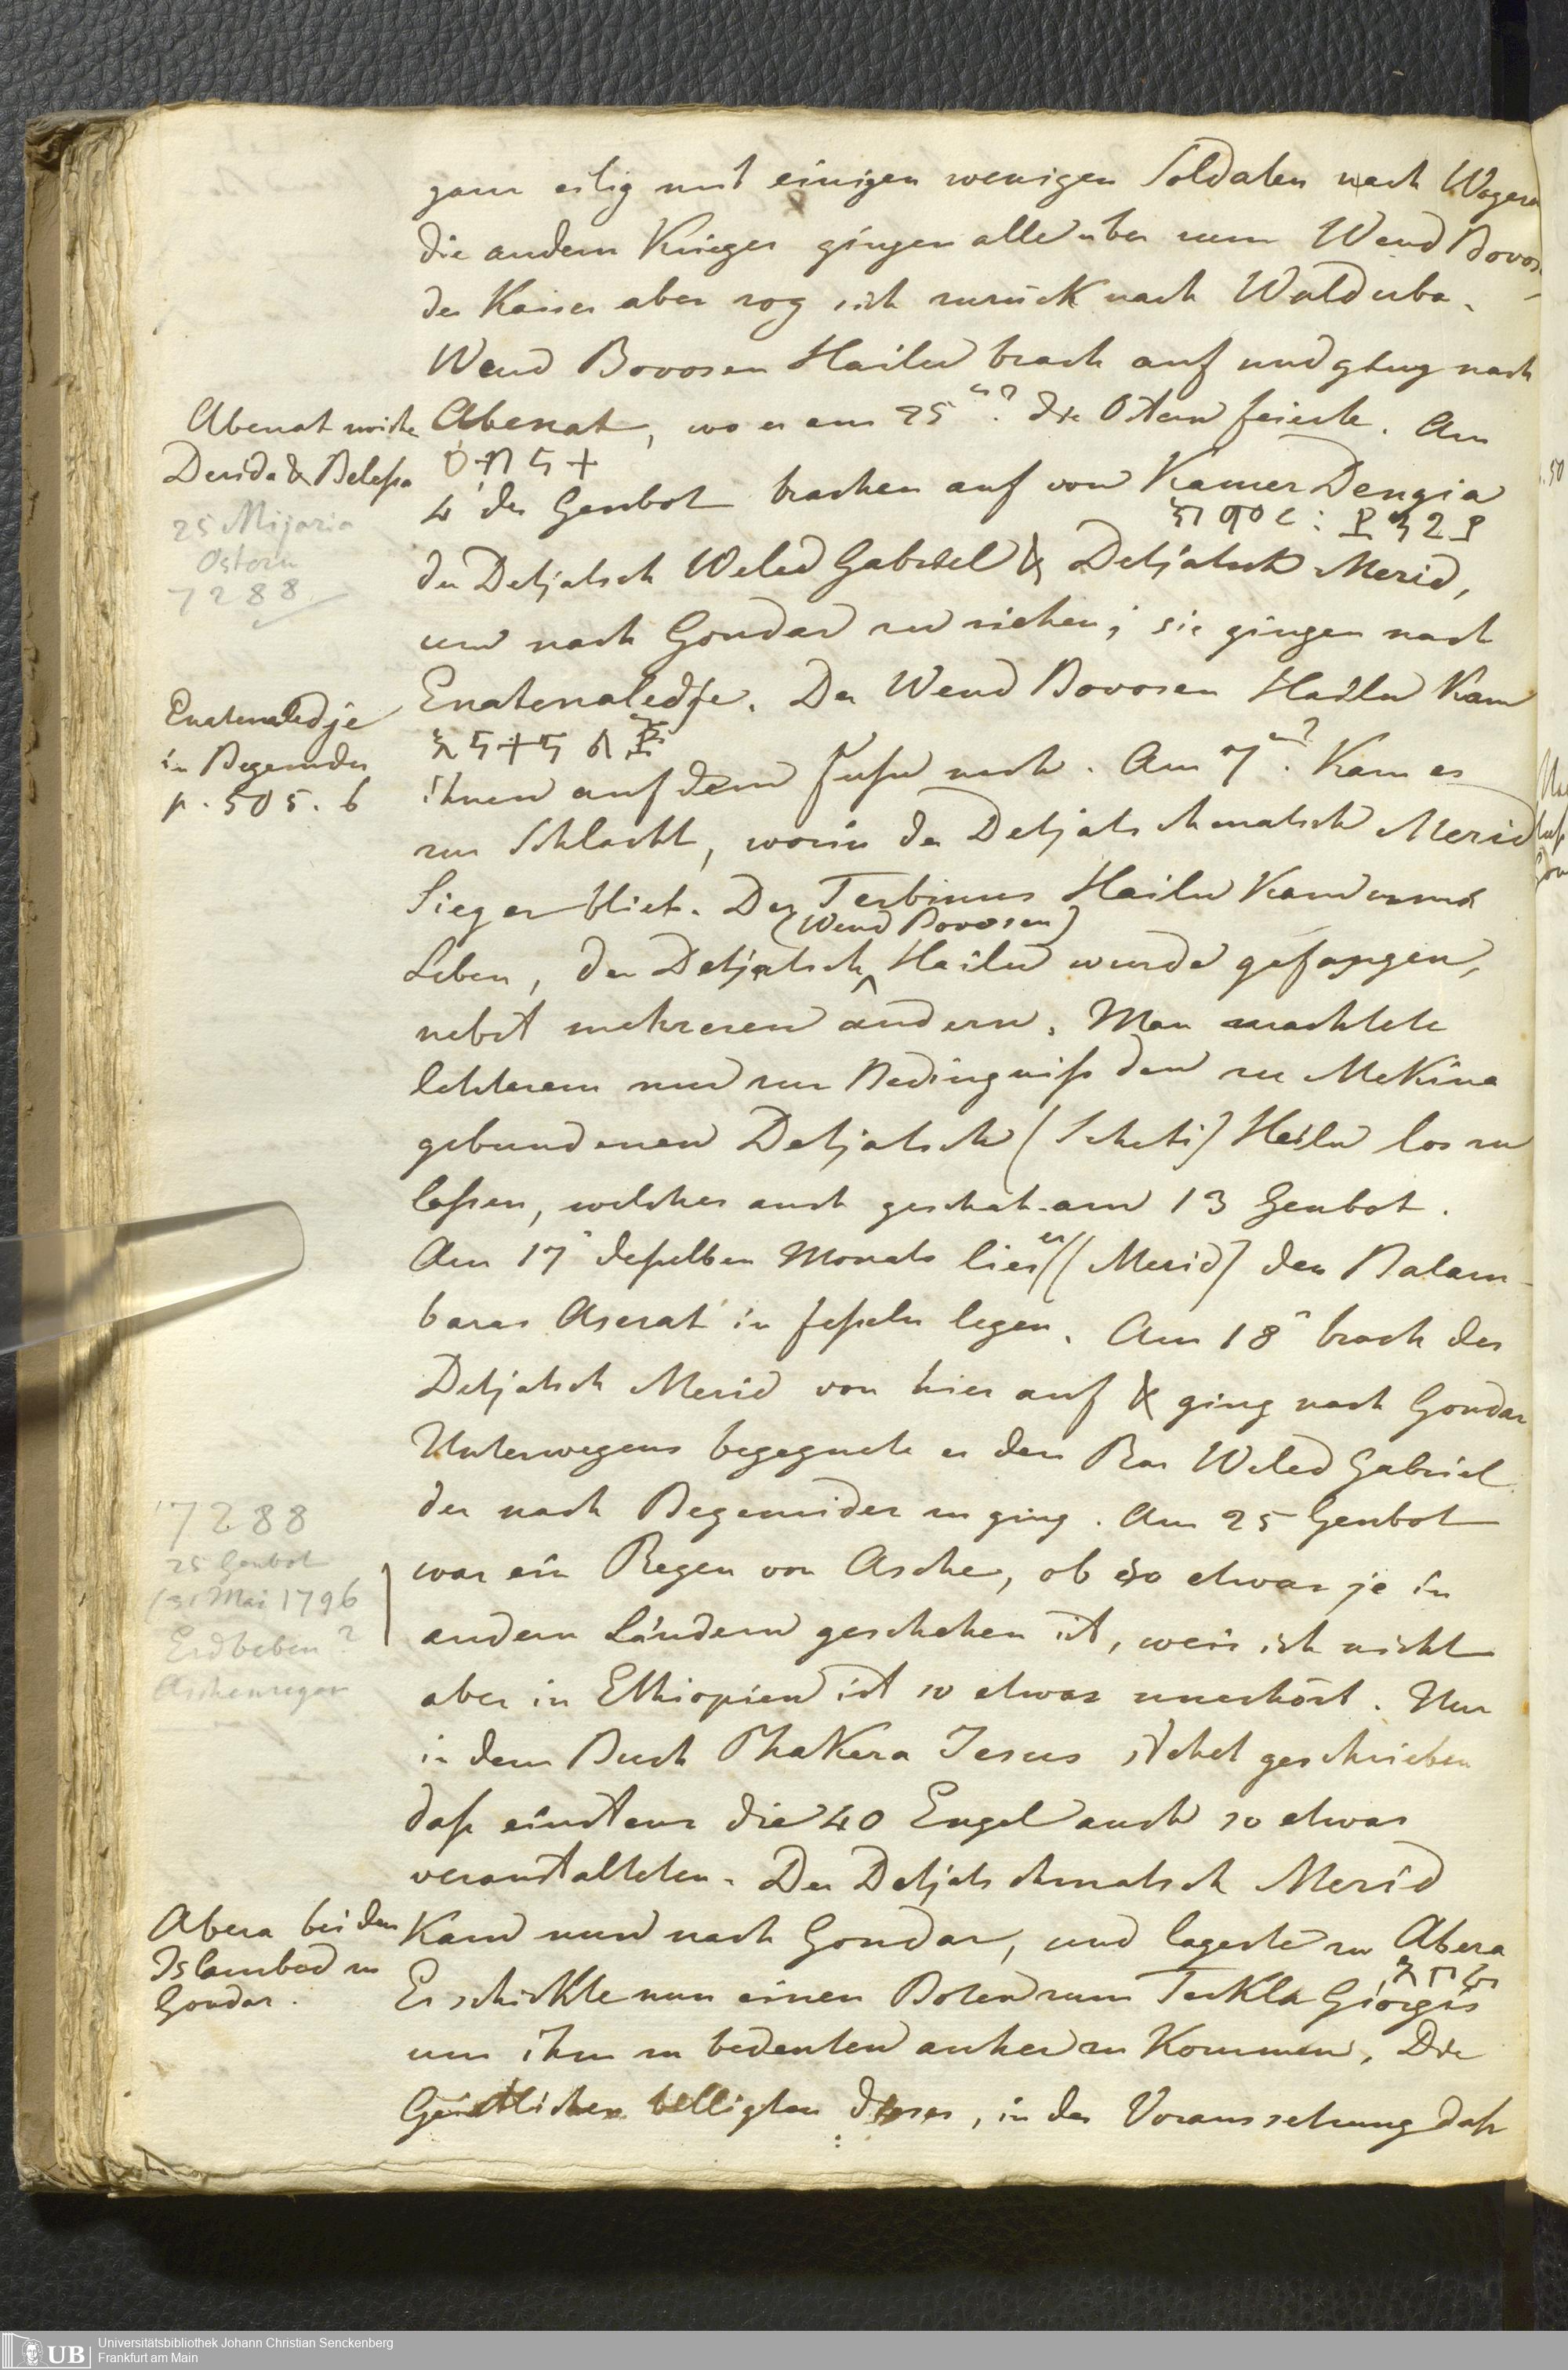 ganz eilig mit einigen wenigen Soldaten nach Wogera
die andern Krieger gingen alle über zum Wend Bovosen
der Kaiser aber zog sich zurück nach Walduba.
Wend Bovosen Hailu brach auf und ging nach
Abenat zwischen
Derida & Belessa
25 Mijazia
Ostern
7288
Abenat, wo er am 25ⁿ? die Ostern feierte. Am
ዐብነት
4 des Genbot brachen auf von Kamer Dengia
der Detjatsch Weled Gabriel & Detjatsch Merid,
um nach Gondar zu ziehen; sie gingen nach
Enatenaledje
in Begemder
p. 505. b
Enatenaledje. Der Wend Bovosen Hailu kam
ihnen auf dem Fusse nach. Am 7ⁿ? kam es
zur Schlacht, worin der Detjatschmatsch Merid
Sieger blieb. Der Terbinus Hailu kam ums
(Wend Bovosen)
Leben, der Detjatsch Hailu wurde gefangen,
nebst mehreren andern. Man machtete
letzterem nun zur Bedingniss den zu Mekina
gebundenen Detjatsch (Scheti) Hailu los zu
lassen, welches auch geschah am 13 Genbot.
Am 17ⁿ desselben Monats lies er (Merid) den Balam-
baras Aserat in Fesseln legen. Am 18ⁿ brach der
Detjatsch Merid von hier auf & ging nach Gondar
Unterwegens begegnete er den Ras Weled Gabriel
der nach Begemider zu ging. Am 25 Genbot
7288
25 Genbot
(31 Mai 1796
Erdbeben?
Aschenregen
war ein Regen von Asche, ob so etwas je in
andern Ländern geschehen ist, weis ich nicht
aber in Ethiopien ist so etwas unerhört. Nur
in dem Buch Phakera Jesus stehet geschrieben
dass einstens die 40 Engel auch so etwas
veranstalteten. Der Detjatschmatsch Merid
Abera bei dem
Islambad zu
Gondar.
kam nun nach Gondar, und lagerte zu Abera
Er schickte nun einen Boten zum Teckla Giorgis
um ihm zu bedeuten anher zu kommen. Die
Geistlichen billigten dieses, in der Voraussetzung dass
UB Universitätsbibliothek Johann Christian Senckenberg
Frankfurt am Main